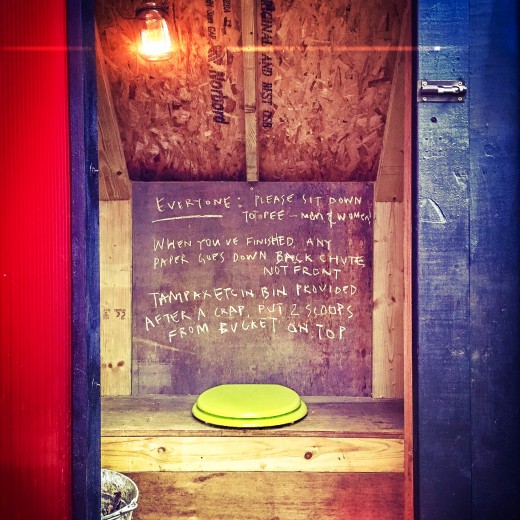 Norbord
ORIGINAL AND BEST OSB
EVERYONE: PLEASE SIT DOWN
TO PEE - MEN & WOMEN
WHEN YOU'VE FINISHED, ANY
PAPER GOES DOWN BACK CHUTE
NOT FRONT
TAMPAX ETC IN BIN PROVIDED
AFTER A CRAP, PUT 2 SCOOPS
FROM BUCKET ON TOP